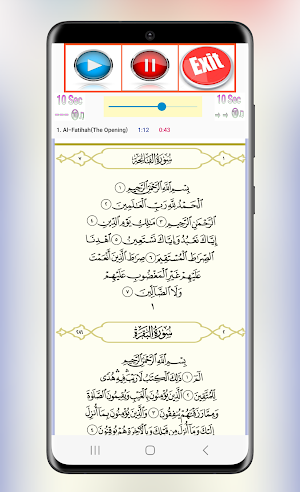 Exit
10 Sec
10 Sec
1. Al-Fatihah(The Opening) 1:12 0:43
٧ سُورَةُ الْفَاتِحَةِ ١
بِسْمِ اللَّهِ الرَّحْمَٰنِ الرَّحِيمِ ١
الْحَمْدُ لِلَّهِ رَبِّ الْعَالَمِينَ ٢
الرَّحْمَٰنِ الرَّحِيمِ ٣ مَالِكِ يَوْمِ الدِّينِ ٤
إِيَّاكَ نَعْبُدُ وَإِيَّاكَ نَسْتَعِينُ ٥ اهْدِنَا
الصِّرَاطَ الْمُسْتَقِيمَ ٦ صِرَاطَ الَّذِينَ أَنْعَمْتَ
عَلَيْهِمْ غَيْرِ الْمَغْضُوبِ عَلَيْهِمْ
وَلَا الضَّالِّينَ ٧
١
٢٨٦ سُورَةُ الْبَقَرَةِ ٢
بِسْمِ اللَّهِ الرَّحْمَٰنِ الرَّحِيمِ
الم ١ ذَٰلِكَ الْكِتَابُ لَا رَيْبَ فِيهِ هُدًى
لِلْمُتَّقِينَ ٢ الَّذِينَ يُؤْمِنُونَ بِالْغَيْبِ وَيُقِيمُونَ الصَّلَاةَ
وَمِمَّا رَزَقْنَاهُمْ يُنْفِقُونَ ٣ وَالَّذِينَ يُؤْمِنُونَ بِمَا أُنْزِلَ
إِلَيْكَ وَمَا أُنْزِلَ مِنْ قَبْلِكَ وَبِالْآخِرَةِ هُمْ يُوقِنُونَ ٤